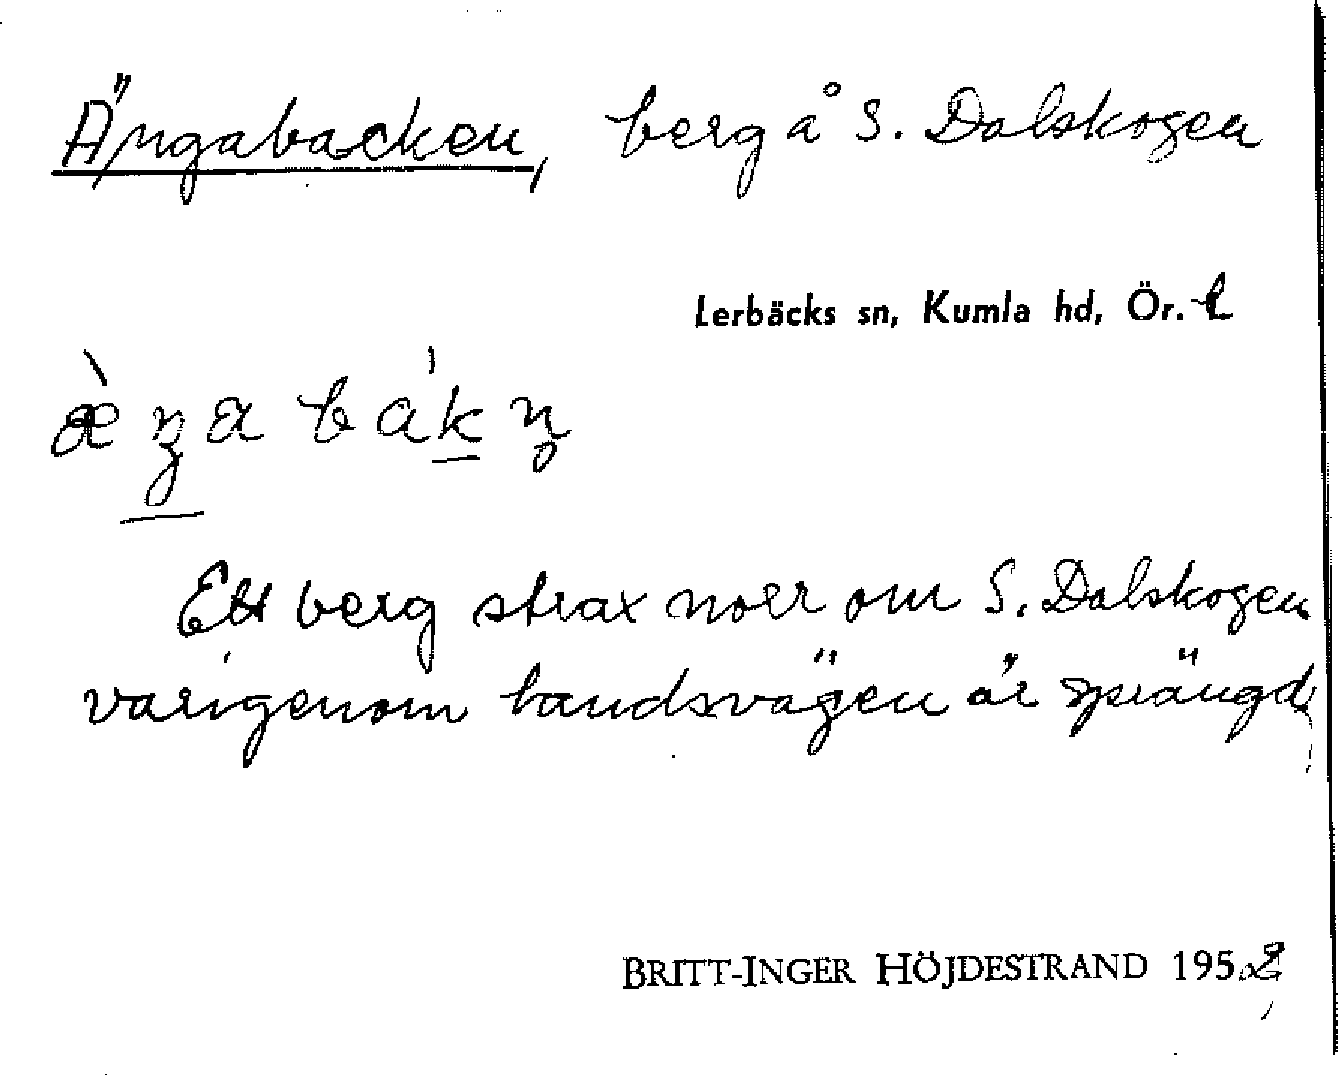 Ängabacken, berg å S. Dalskogen
Lerbäcks sn, Kumla hd, Ör. l
æ̀ŋa bákn̥
Ett berg strax norr om S. Dalskogen
varigenom landsvägen är sprängd.
BRITT-INGER HÖJDESTRAND 1952